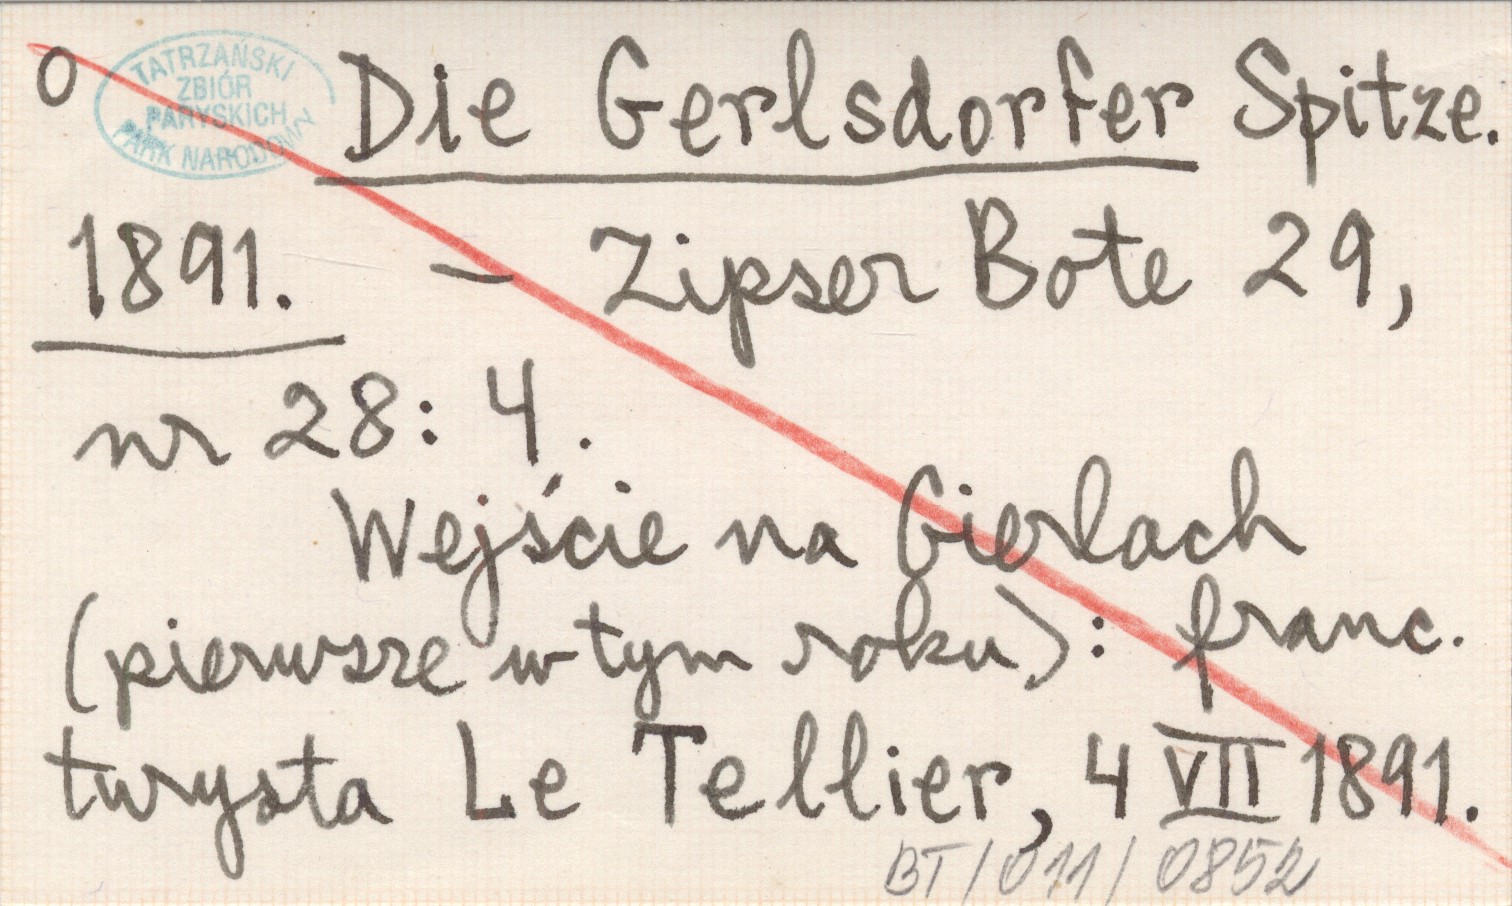 O
TATRZAŃSKI
ZBIÓR
PARYSKICH
PARK NARODOWY
Die Gerlsdorfer Spitze.
1891. – Zipser Bote 29,
nr 28: 4.
Wejście na Gierlach
(pierwsze w tym roku): franc.
turysta Le Tellier, 4 VII 1891.
BT/011/0852